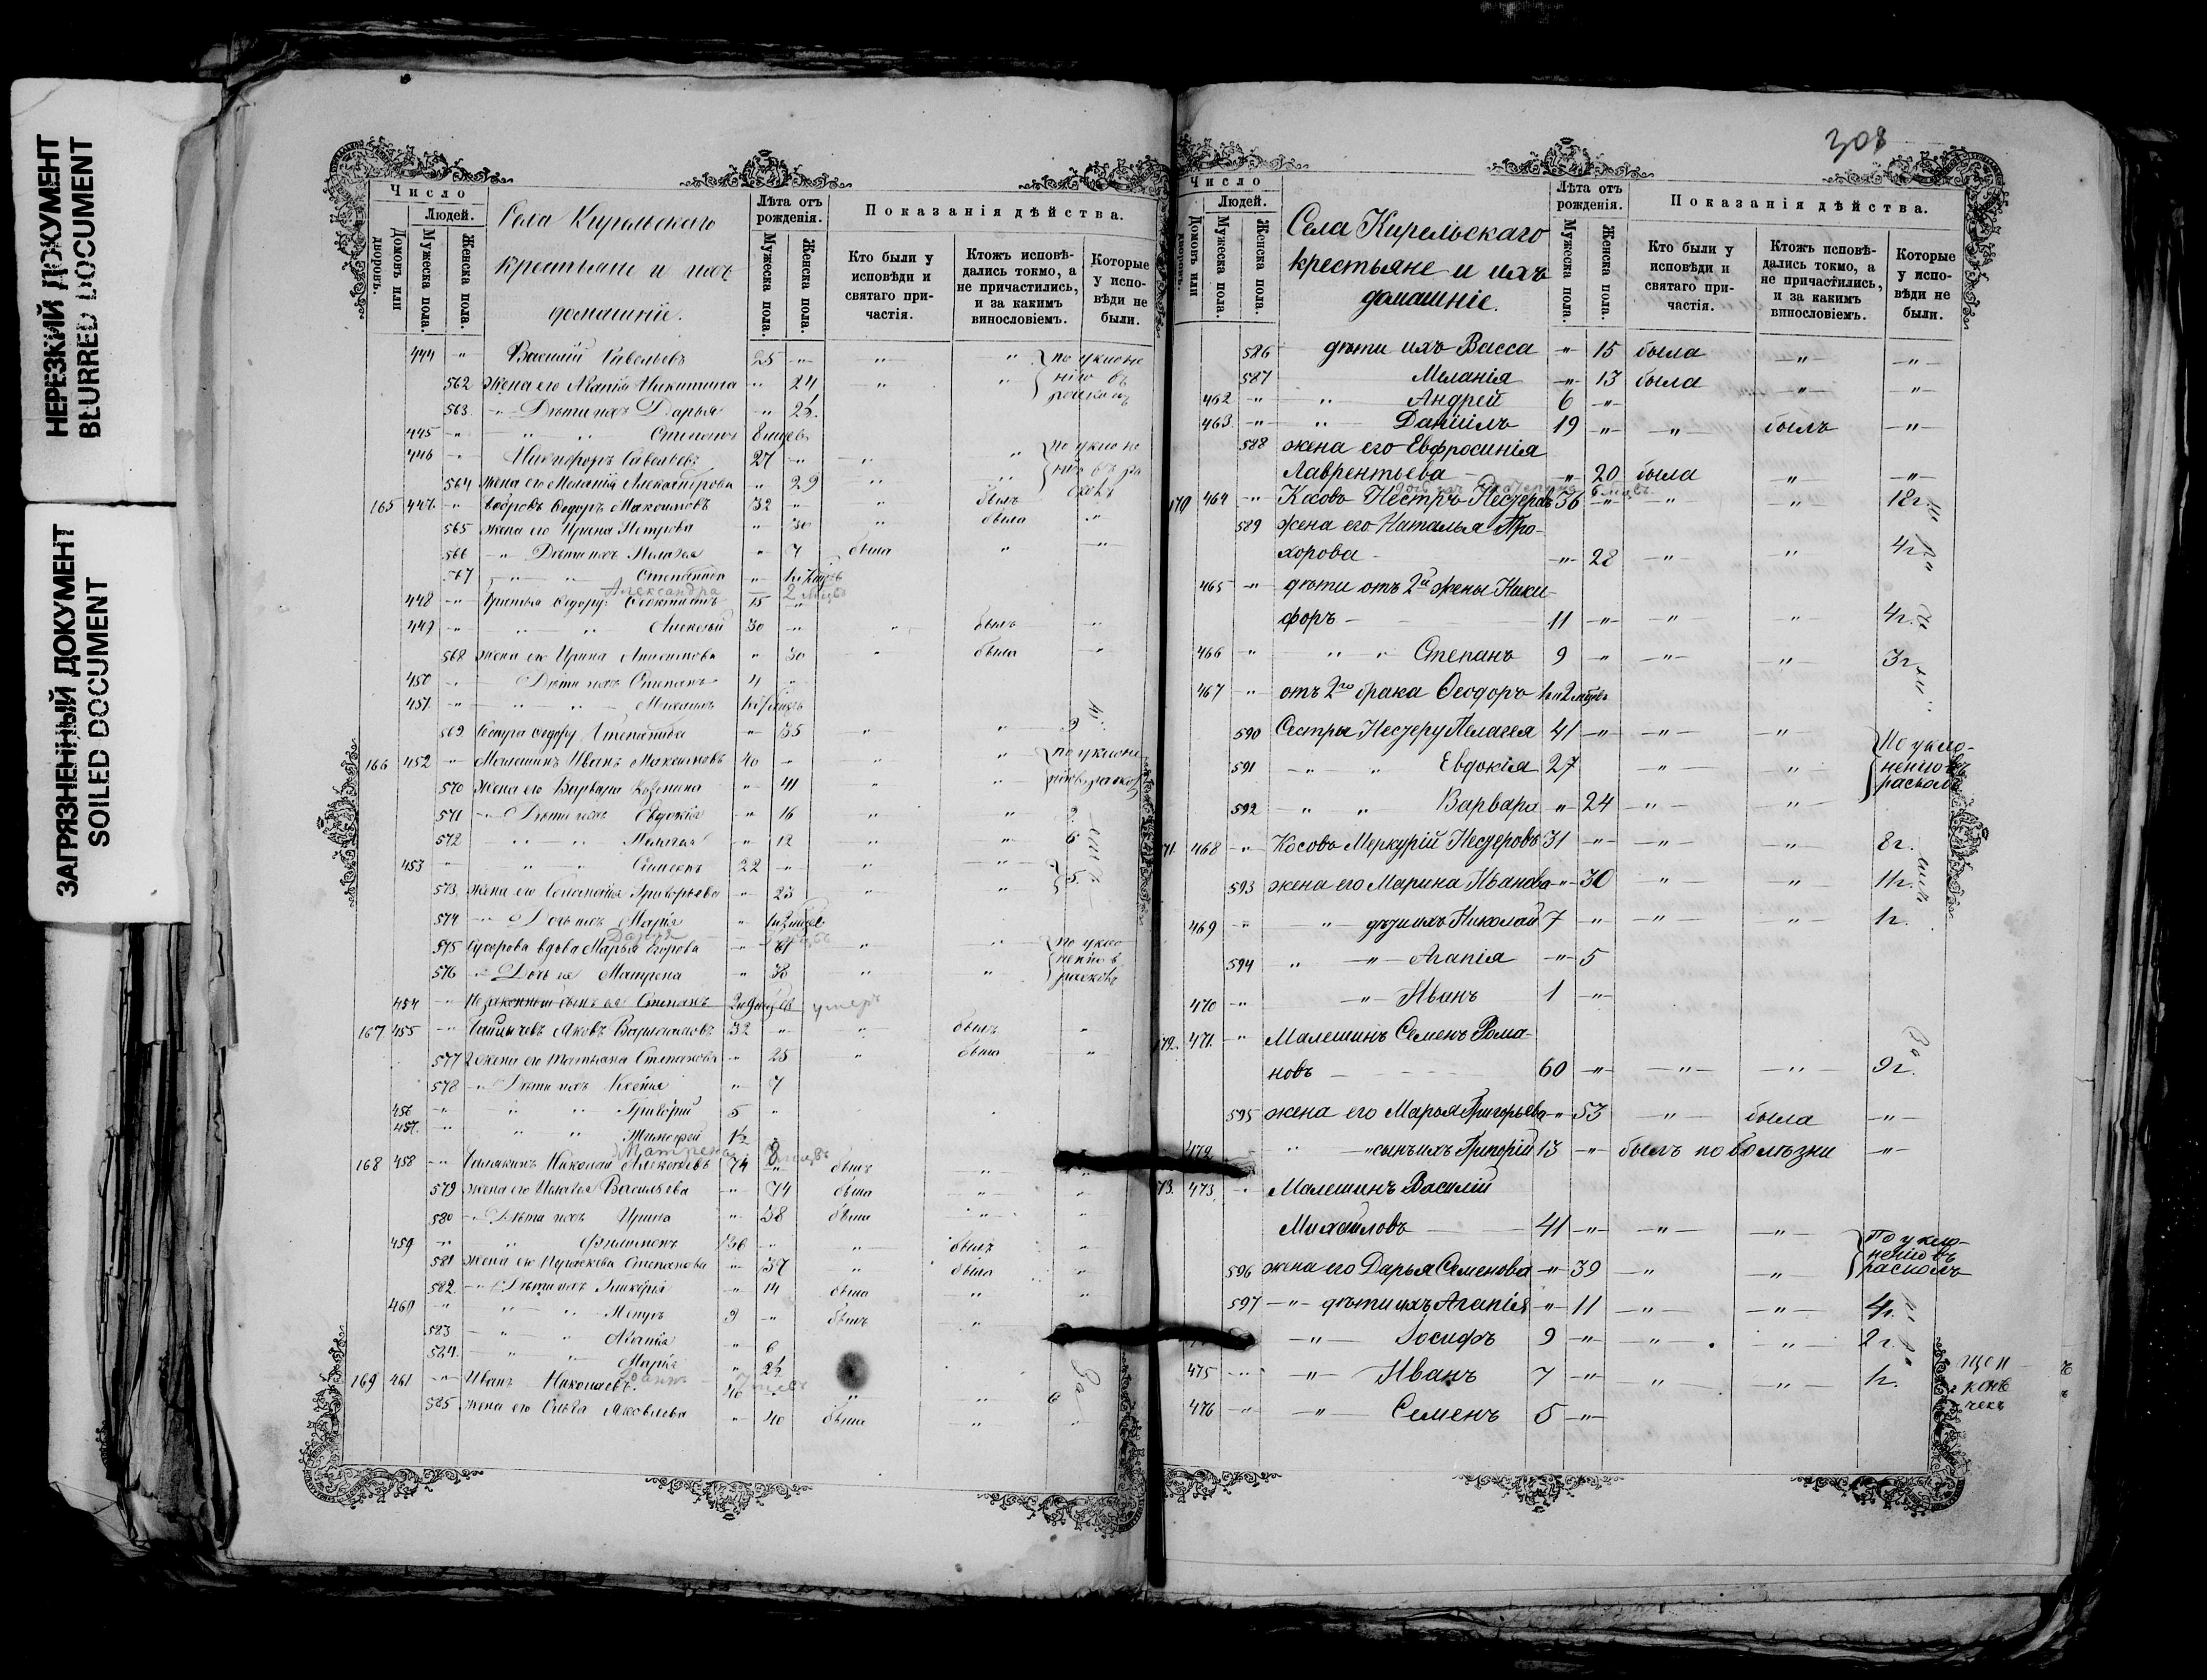 НЕРЕЗКИЙ ДОКУМЕНТ
BLURRED DOCUMENT
ЗАГРЯЗНЕННЫЙ ДОКУМЕНТ
SOILED DOCUMENT
Число
Людей.
Домовъ или дворовъ.
Мужеска пола.
Женска пола.
Села Кирельскаго
крестьяне и ихъ
домашніе.
Лѣта отъ рожденія.
Мужеска пола.
Женска пола.
Показанія дѣйства.
Кто были у исповѣди и святаго причастія.
Ктожъ исповѣдались токмо, а не причастились, и за какимъ винословіемъ.
Которые у исповѣди не были.
444 -"- Василій Савельевъ 25 -"- " " по уклоне
562 жена его Агапія Никитина " 24 " " нію въ
563 -"- Дѣти ихъ Дарья " 2½ расколъ
445 -"- -"- " Степанъ 8 мцев
446 -"- Никифоръ Савельевъ 27 -"- " " по уклоне
564 жена его Меланія Александрова " 29 " " нію въ ра
165 447 -"- Ѳеодоръ Максимовъ 32 " " былъ сколъ
565 жена его Ирина Петрова " 30 " была "
566 -"- Дѣти ихъ Пелагея " 7 была " "
567 " " Степанида "
Александра 2
448 -"- Ѳеодору: Ѳеоктистъ 15 "
449 -"- " " Алексѣй 30 -"- " былъ "
568 жена его Ирина Анисимова " 30 " была "
450 -"- Дѣти ихъ Степанъ 4 "
451 -"- " " Михаилъ
569 Сестра Ѳедору Степанида " 35 " " 9
166 452 -"- Малешинъ Иванъ Максимовъ 40 - " " по уклоне
570 жена его Варвара Козмина " 41 " " нію въ раскол
571 -"- Дѣти ихъ Евдокія " 16 " "
572 " " Пелагея " 12 " " 6
453 " " " Симеонъ 22 " " " 5
573 жена его Соломонія Григорьева " 23 " "
574 -"- Дочь ихъ Марія "
Дарья
575 вдова Марья Егорова " 64 " " по укло
576 -"- Дочь ея Матрена " 38 " " ненію в
454 -"- Незаконный сынъ ея Степанъ 2 и 9 мцев умеръ расколъ
167 455 -"- Яковъ Варламовъ 32 " " былъ "
577 2 жена его Татьяна Степанова " 25 " была "
578 -"- Дѣти ихъ Ксенія " 7
456 " " " Григорій 5 "
457 " " " Тимофей 1½ "
Матрена 8 мцевъ
168 458 -"- Николай Алексѣевъ 74 " былъ " "
579 жена его Пелагея Васильева " 74 была " "
580 -"- Дѣти ихъ Ирина " 38 была " "
459 -"- " Филимонъ 36 " " былъ "
581 жена его Параскева Степанова " 37 " была "
582 -"- Дѣти ихъ Гликерія " 14 была " "
460 " " " Петръ 9 " былъ "
583 -"- " Агапія " 6
584 " " Марія " 2½
169 461 -"- Иванъ Николаевъ 40 " " " 6
585 жена его Яковлева " 40 была " "
308
Число
Людей.
Домовъ или дворовъ.
Мужеска пола.
Женска пола.
Села Кирельскаго
крестьяне и ихъ
домашніе.
Лѣта отъ рожденія.
Мужеска пола.
Женска пола.
Показанія дѣйства.
Кто были у исповѣди и святаго причастія.
Ктожъ исповѣдались токмо, а не причастились, и за какимъ винословіемъ.
Которые у исповѣди не были.
586 дѣти ихъ Васса " 15 была -"- -"-
587 " Меланія -"- 13 была -"- "
462 -"- " Андрей 6 -"-
463 -"- " Даніилъ 19 -"- -"- былъ -"-
588 жена его Евфросинія
Лаврентьева " 20 была " -"-
170 464 -"- Косовъ Нестръ Нестеровъ 36 -"- " " 18 г.
589 жена его Наталья Про-
хорова - -"- 28 -"- " 4 г.
465 -"- дѣти отъ 2й жены Ники-
форъ - 11 -"- -"- -"- 4 г.
466 -"- " " Степанъ 9 -"- -"- -"- 3 г.
467 -"- отъ 2го брака Ѳеодоръ
590 Сестры Нестеру Пелагея 41 -"- -"- -"- По укло-
591 -"- " Евдокія 27 -"- " ненію въ
592 " " Варвара " 24 -"- -"- расколъ
171 468 -"- Косовъ Меркурій Нестеровъ 31 -"- -"- -"- 8 г.
593 жена его Марина Иванова -"- 30 " -"- 11 г.
469 -"- " дѣти ихъ Николай 7 -"- -"- -"- 1 г.
594 " -"- Агапія -"- 5
470 -"- -"- Иванъ 1 -"-
172. 471. -"- Малешинъ Семенъ Рома-
новъ 60 -"- -"- -"- 9 г.
595 жена его Марья Григорьева " 53 -"- была -"-
472 " -"- сынъ ихъ Григорій 13 -"- былъ по болѣзни -"-
173. 473. -"- Малешинъ Василій
Михайловъ 41 -"- -"- -"- По укло-
нению въ
596 жена его Дарья Семенова -"- 39 " -"- расколъ
597 -"- дѣти ихъ Агапія " 11 -"- -"- 4 г.
-"- Іосифъ 9 -"- " -"- 2 г.
475 -"- -"- Иванъ 7 -"- " -"- 1 г.
476 -"- -"- Семенъ 5 -"-